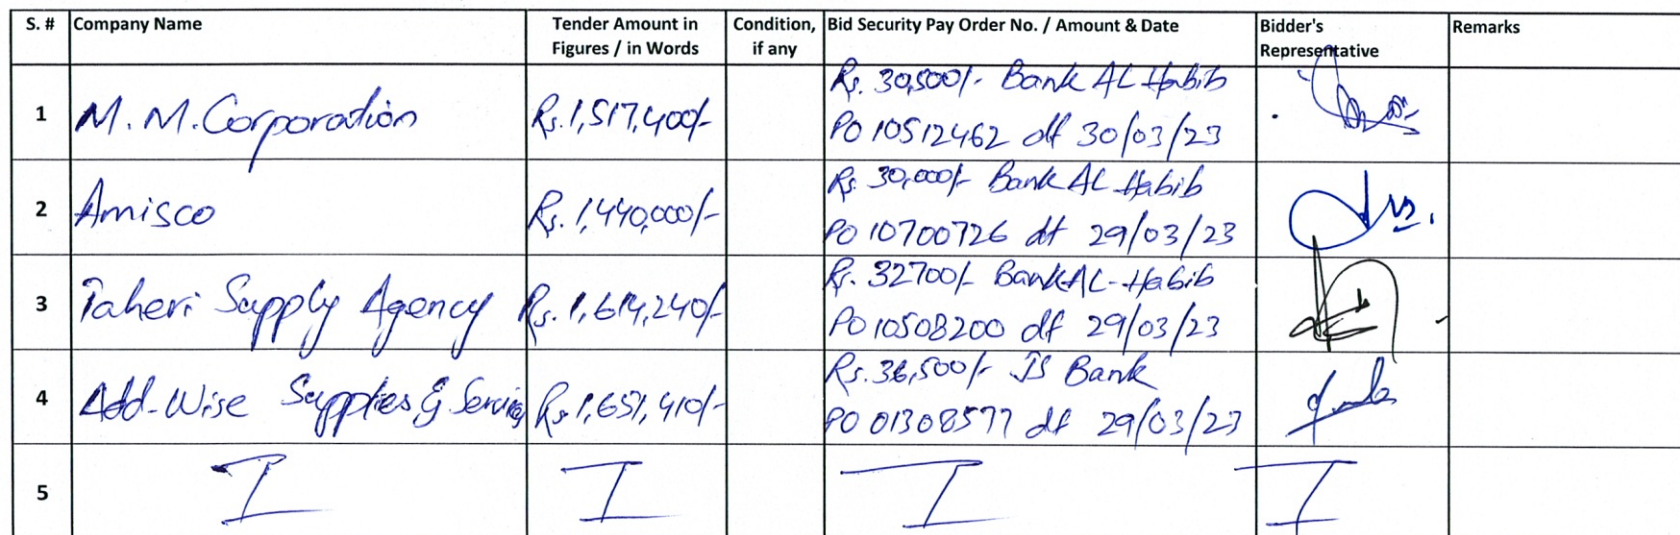 S. # Company Name Tender Amount in Figures / in Words Condition, if any Bid Security Pay Order No. / Amount & Date Bidder's Representative Remarks
1 M.M.Corporation Rs.1,517,400/- Rs. 30,500/- Bank AL Habib
PO 10512462 dt 30/03/23
2 Amisco Rs.1,440,000/- Rs 30,000/- Bank AL Habib
PO 10700726 dt 29/03/23
3 Taheri Supply Agency Rs.1,614,240/- Rs. 32700/- Bank AL-Habib
PO 10508200 dt 29/03/23
4 Add-Wise Supplies & Services Rs.1,651,410/- Rs.36,500/- JS Bank
PO 01308577 dt 29/03/23
5